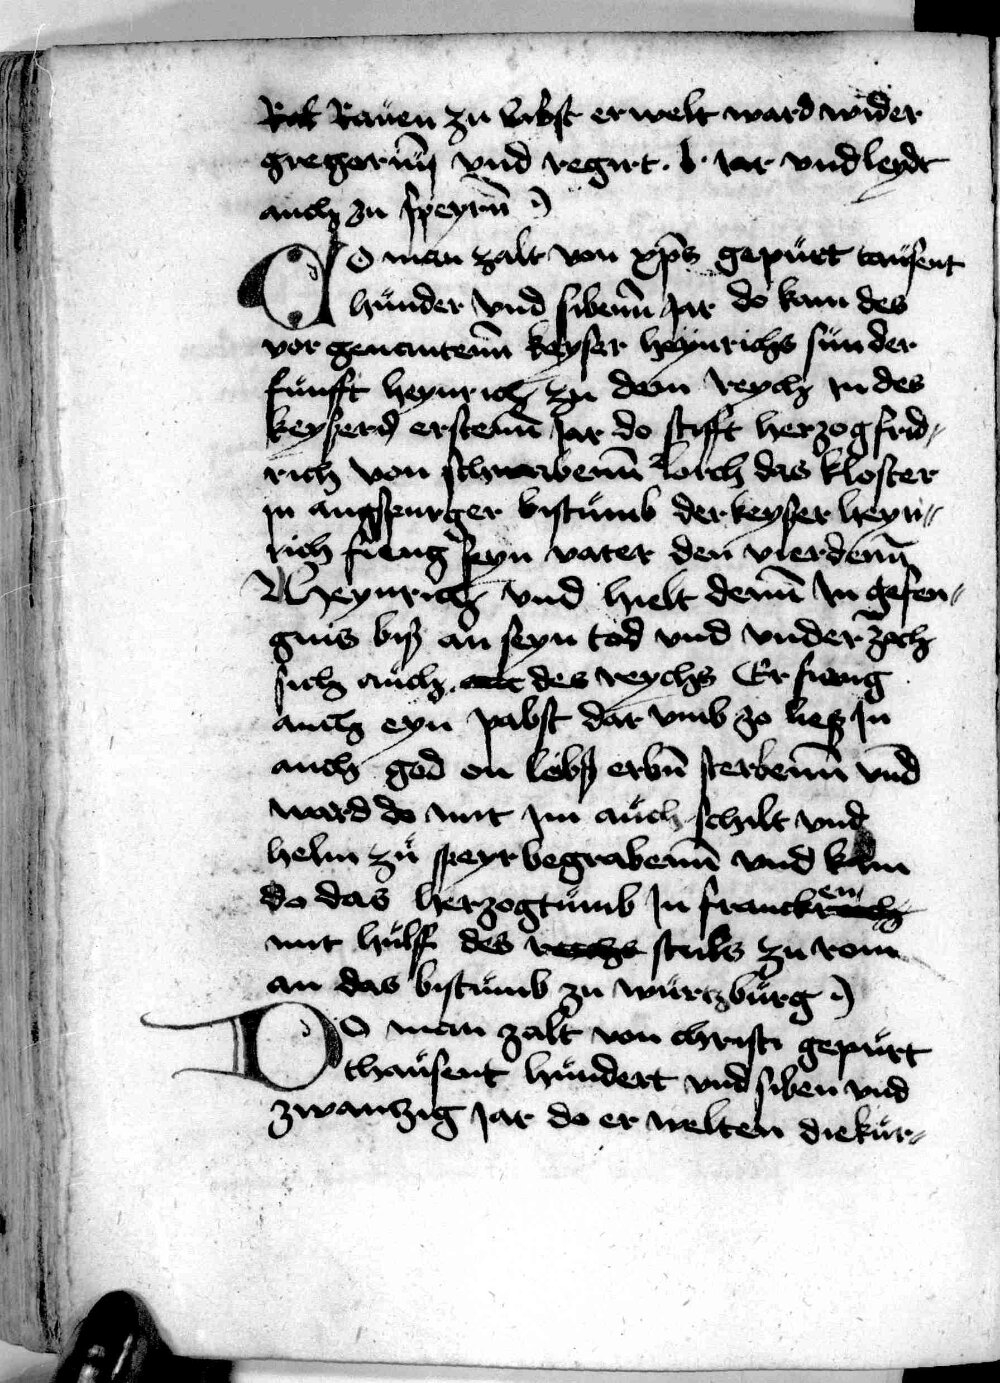 Rat Rauen zu babst erwelt ward wider
gregorium vnd regirt . v . jar vnd leydt
auch zu speyrn̄
DO man zalt von xp̄s gepürt tausent
hünder vnd sibenn̄ Jar do kam des
vor genantenn̄ keyser heynrichs sün der
fünfft heynrich zu dem reych In des
keysers erstenn̄ Jar do stifft herzog frid„
rich von schwabenn̄ lorch das kloster
in augspurger bistümb der keyser heyn„
rich fieng seyn vater den vierdenn̄
Heynrich vnd hielt denn̄ In gefen„
gnis biß an seyn tod vnd vnder zoch
sich auch des reychs Er fieng
auch eyn pabst dar vmb zo ließ In
auch god on lebß erbn̄ sterbenn̄ vnd
ward do mit Im auch schilt vnd
helm zü speyr begrabenn̄ vnd kam
do das herzogtümb In francken
mit hülff des reychs stuls zu rom
an das bistümb zu würtzbürg
DO man zalt von christi gepürt
thaüsent hündert vnd siben vnd
zwanzig Jar do er welten die kür„